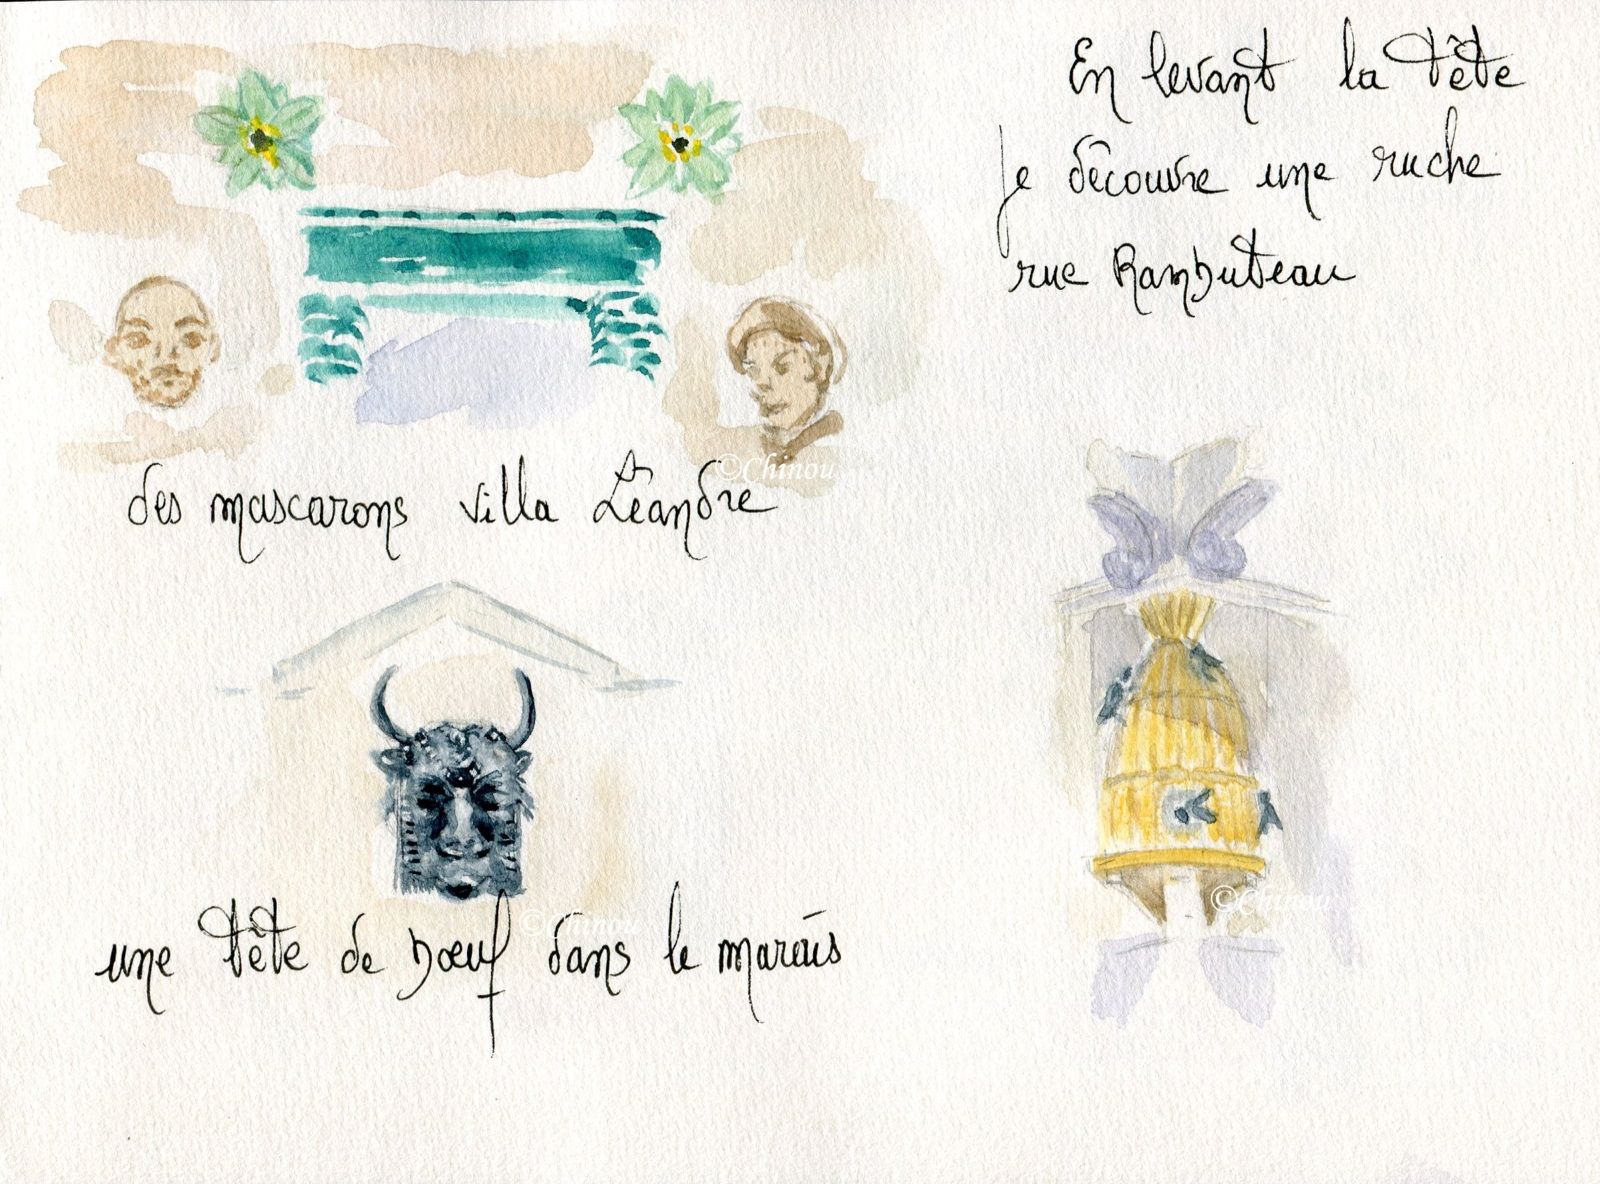 En levant la tête
je découvre une ruche
rue Rambuteau
©Chinou
des mascarons villa Léandre
©Chinou
©Chinou
une tête de bœuf dans le marais